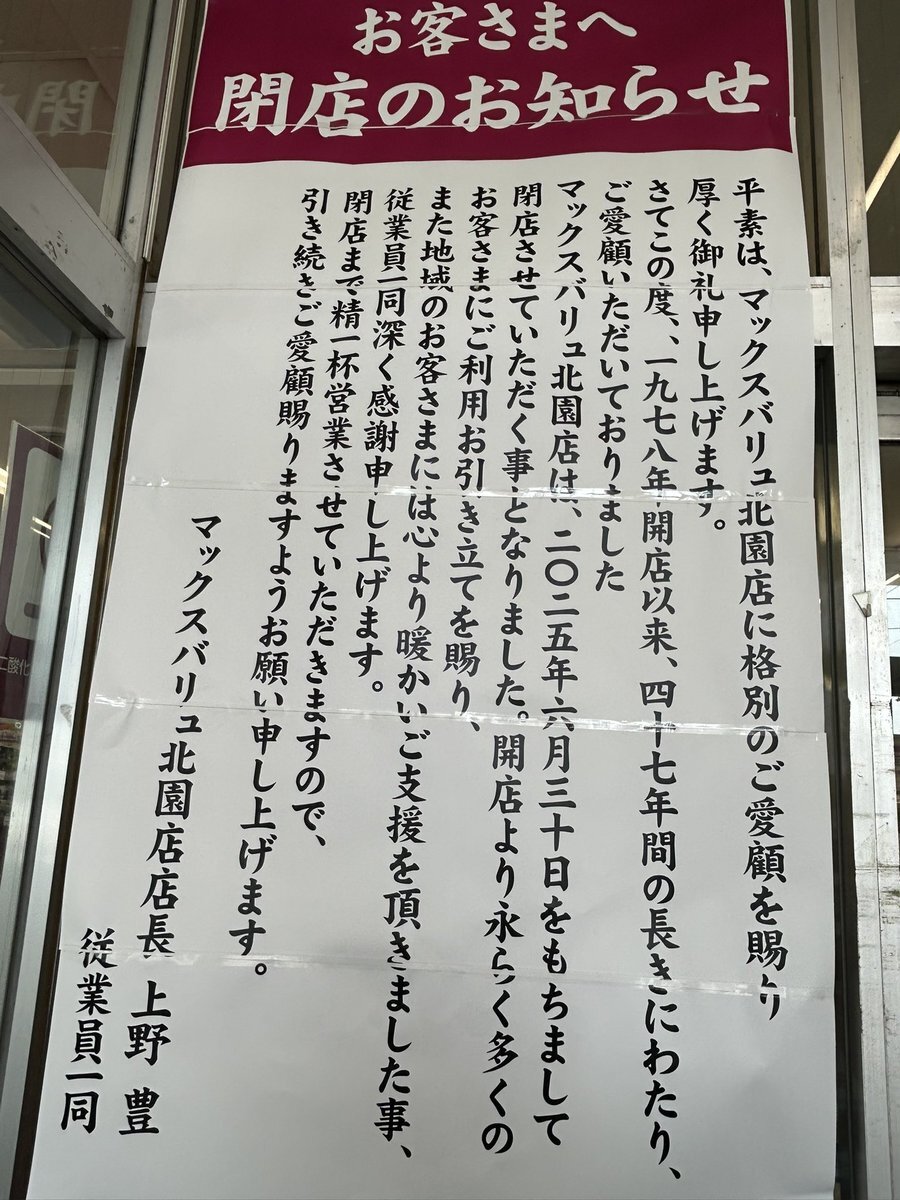 お客さまへ
閉店のお知らせ
平素は、マックスバリュ北園店に格別のご愛顧を賜り
厚く御礼申し上げます。
さてこの度、一九七八年開店以来、四十七年間の長きにわたり、
ご愛顧いただいておりました
マックスバリュ北園店は、二〇二五年六月三十日をもちまして
閉店させていただく事となりました。開店より永らく多くの
お客さまにご利用お引き立てを賜り、
また地域のお客さまには心より暖かいご支援を頂きました事、
従業員一同深く感謝申し上げます。
閉店まで精一杯営業させていただきますので、
引き続きご愛顧賜りますようお願い申し上げます。
マックスバリュ北園店店長 上野 豊
従業員一同